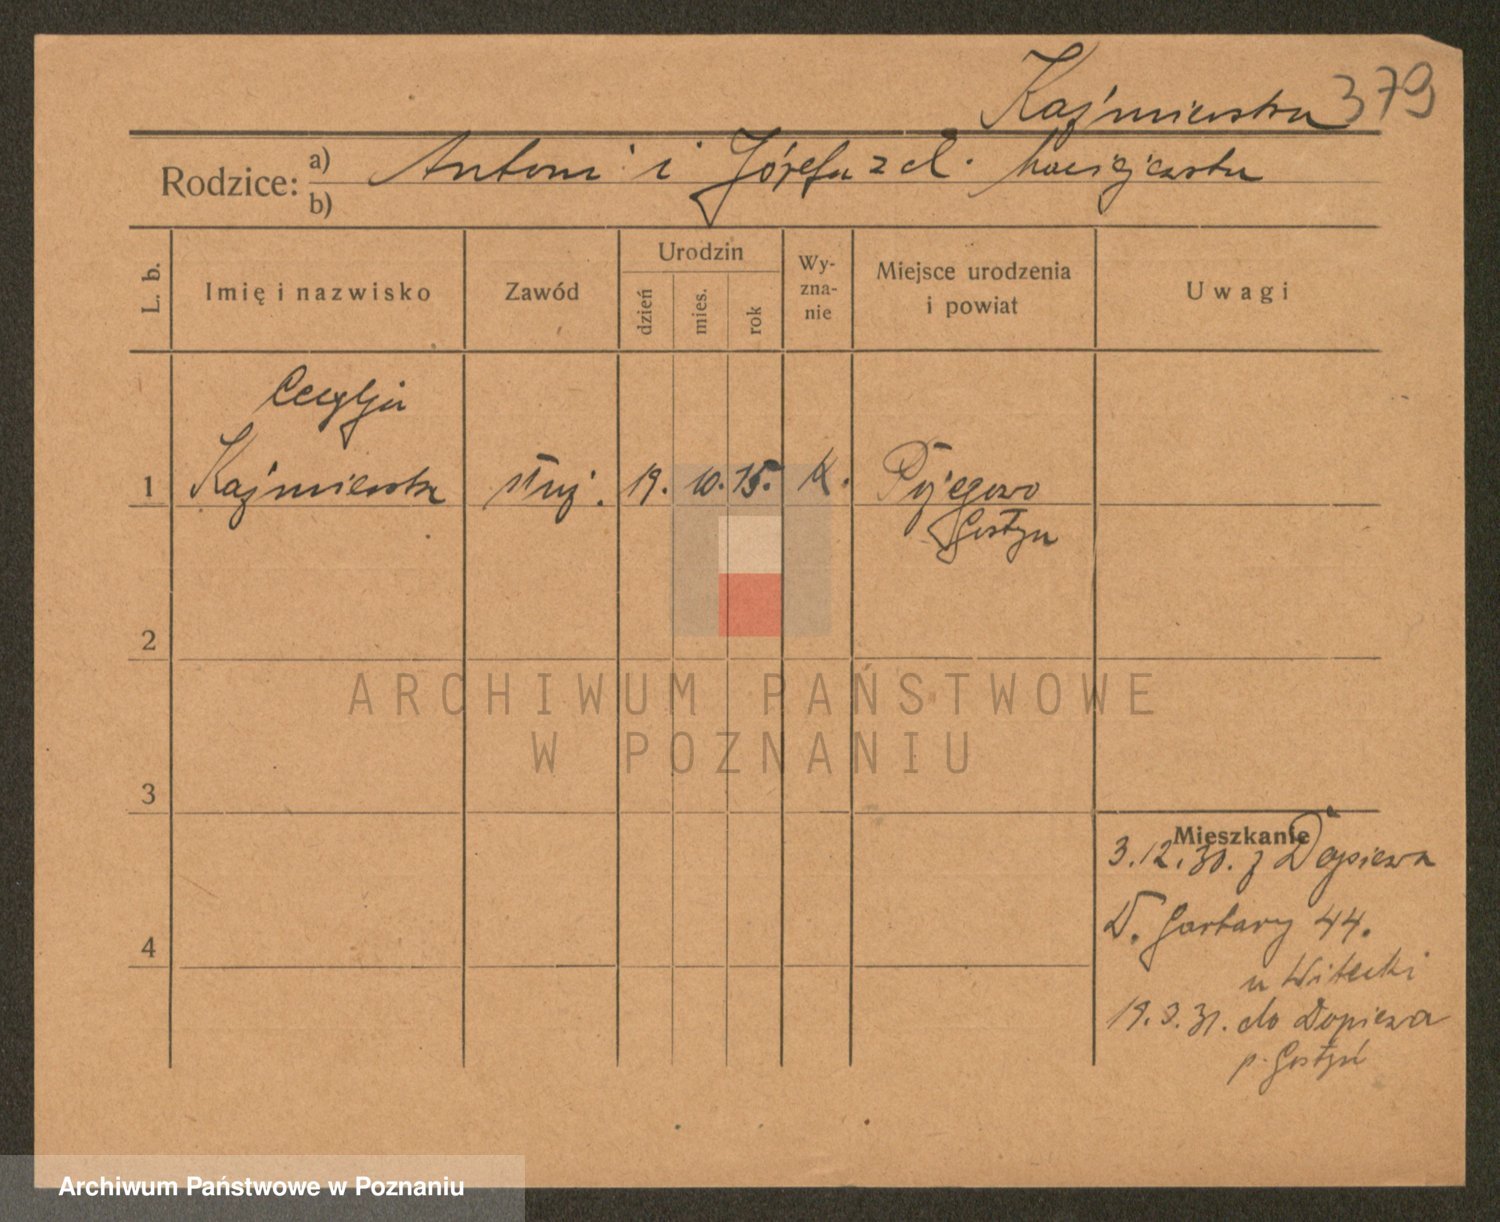 Kaźmierska 379
Rodzice: a) Antoni i Józefa z d. Maciejewska
b)
L. b.
Imię i nazwisko
Zawód
Urodzin
dzień
mies.
rok
Wy-
zna-
nie
Miejsce urodzenia
i powiat
Uwagi
Cecylja
1 Kaźmierska służ. 19. 10. 15. K.
Gostyń
2
3
4
Mieszkanie
3.12.30. z Dopiewa
D. Garbary 44.
u Witecki
19.3.31. do Dopiewa
p. Gostyń
ARCHIWUM PAŃSTWOWE
W POZNANIU
Archiwum Państwowe w Poznaniu